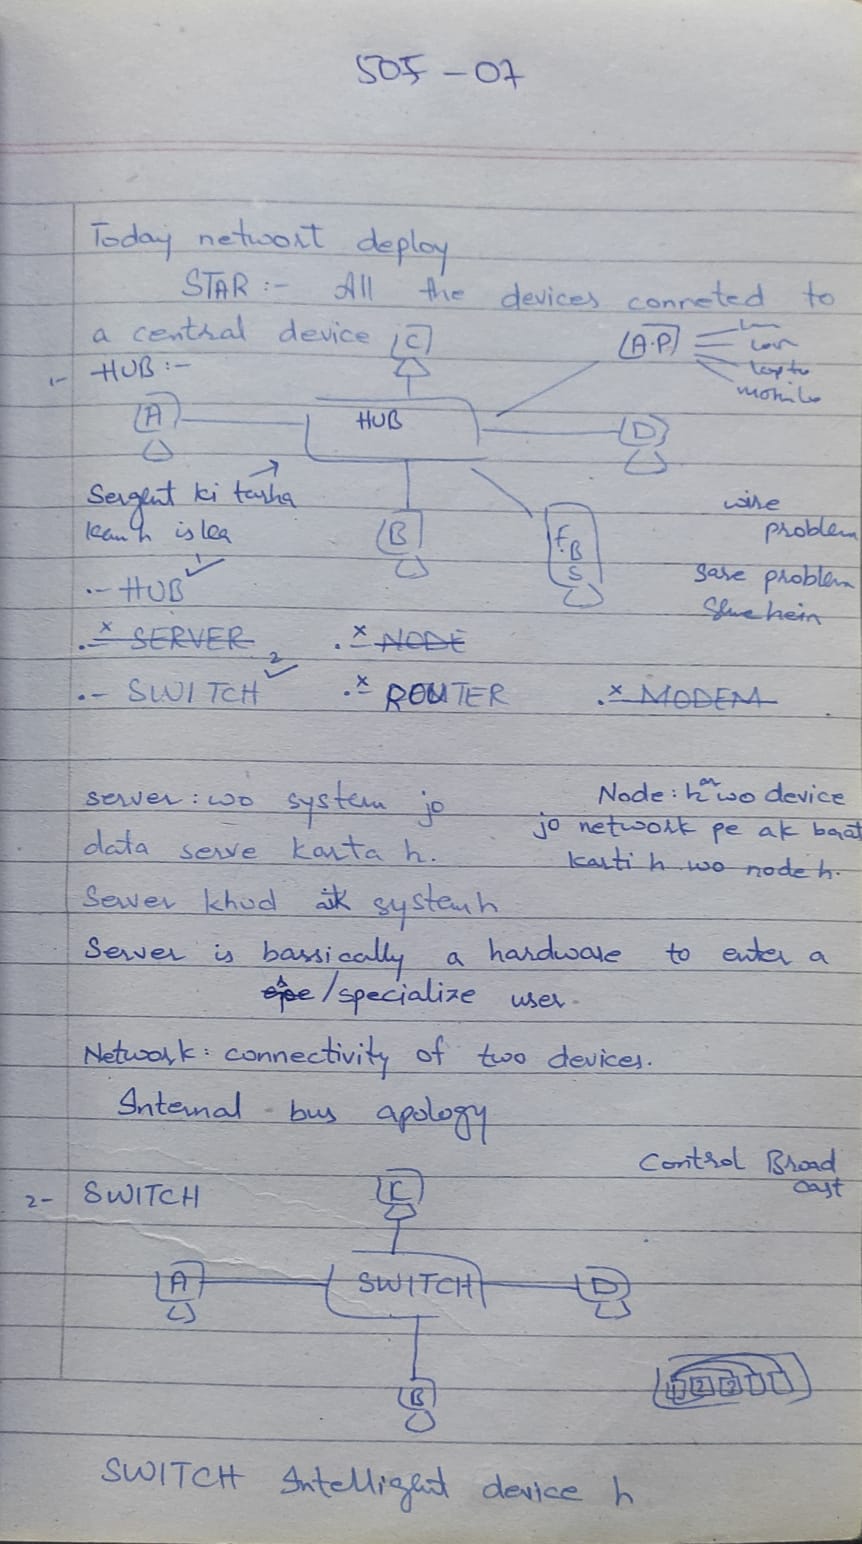 505-07
Today networt deploy
STAR :- All the devices conneted to
a central device
C
A.P
lapto
mobile
1- HUB :-
A
HUB
D
Sergent ki tarha
kam h is ka
B
F.B
S
wire
problem
sare problem
1
.- HUB
.- x SERVER .- x NODE
2
.- SWITCH .- x ROUTER .- x MODEM
server : wo system jo
data serve karta h.
Node : har wo device
jo network pe ak baat
karti h wo node h.
Server khud ak system h
Server is bassically a hardware to enter a
/specialize user.
Network : connectivity of two devices.
Internal bus apology
Control Broad
cast
2- SWITCH
C
A
SWITCH
D
B
SWITCH Intelligent device h